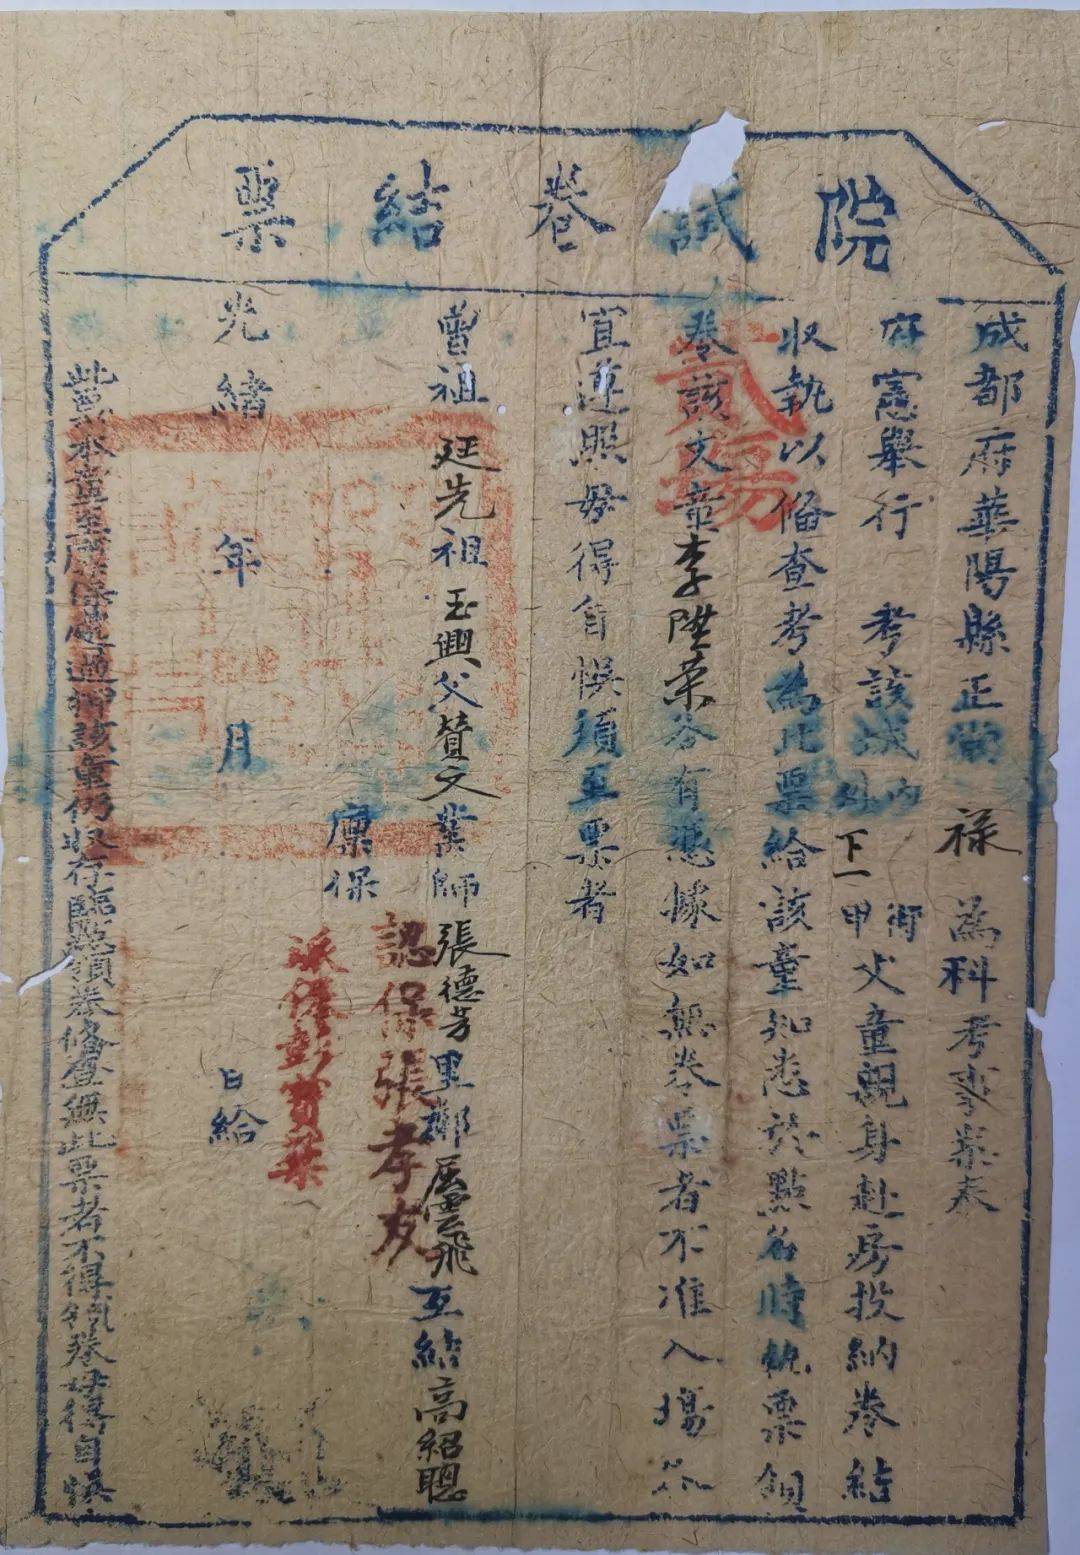 院試卷結票
成都府華陽縣正堂祿為科考事案奉
府憲舉行考該城內外街甲下一文童親身赴房投納卷結
收執以備查考為此票給該童知悉於點名時執票領
卷該文童李陞榮各有憑據如無卷票者不准入場各
宜遵照毋得自悞須至票者
貳場
曾祖廷先祖玉興父贊文業師張德芳里鄰雲飛互結高紹聰
廩保
認保張孝友
派保彭賓
光緒年月日給
此票本童至廩保處過押該童仍收存臨點領卷條查無此票者不得領卷毋得自悞